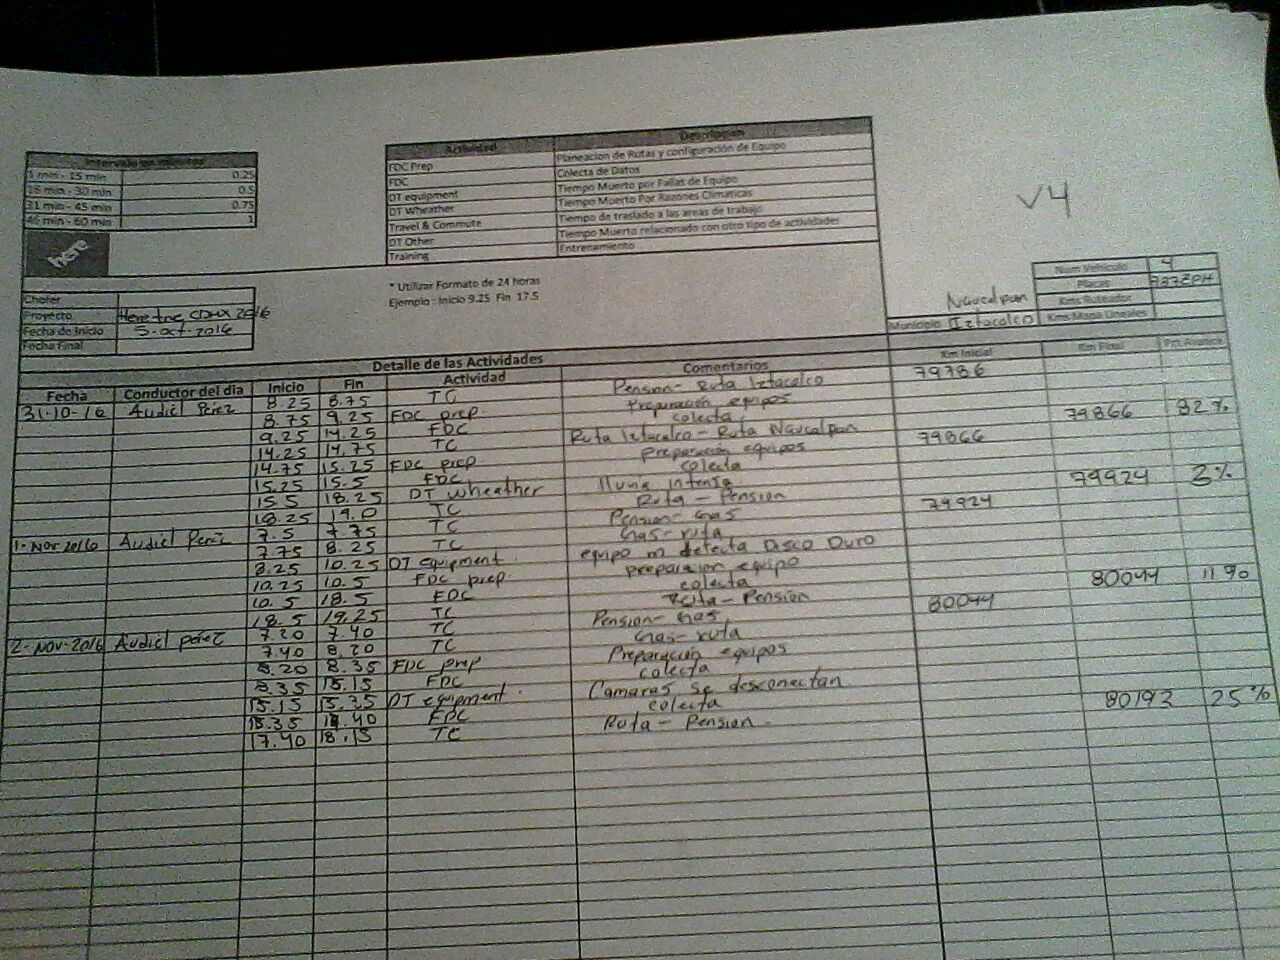 Intervalo en minutos
1 min - 15 min 0.25
16 min - 30 min 0.5
31 min - 45 min 0.75
46 min - 60 min 1
here
Actividad Descripcion
FDC Prep Planeacion de Rutas y configuración de Equipo
FDC Colecta de Datos
DT equipment Tiempo Muerto por Fallas de Equipo
DT Wheather Tiempo Muerto Por Razones Climaticas
Travel & Commute Tiempo de traslado a las areas de trabajo
DT Other Tiempo Muerto relacionado con otro tipo de actividades
Training Entrenamiento
V4
* Utilizar Formato de 24 horas
Ejemplo : Inicio 9.25 Fin 17.5
Chofer
Proyecto Here true CDMX 2016
Fecha de Inicio 5-oct-2016
Fecha Final
Num Vehiculo 4
Placas
Kms Ruteador
Kms Mapa Lineales
Naucalpan
Municipio Iztacalco
Detalle de las Actividades
Fecha Conductor del día Inicio Fin Actividad Comentarios Km Inicial Km Final Pct Avance
31-10-16 Audiel Pérez 8.25 8.75 TC Pension - Ruta Iztacalco 79786
8.75 9.25 FDC prep Preparación equipos
9.25 14.25 FDC colecta 79866 32%
14.25 14.75 TC Ruta Iztacalco - Ruta Naucalpan 79866
14.75 15.25 FDC prep preparación equipos
15.25 15.5 FDC colecta
15.5 18.25 DT wheather lluvia intensa 79924 2%
18.25 19.0 TC Ruta - Pension
1-Nov 2016 Audiel Perez 7.5 7.75 TC Pension - Gas 79924
7.75 8.25 TC Gas - ruta
8.25 10.25 DT equipment equipo no detecta Disco Duro
10.25 10.5 FDC prep preparacion equipo
10.5 18.5 FDC colecta 80044 11%
18.5 19.25 TC Ruta - Pensión
2-Nov-2016 Audiel perez 7.20 7.40 TC Pension - Gas 80044
7.40 8.20 TC Gas - ruta
8.20 8.35 FDC prep Preparación equipos
8.35 15.15 FDC colecta
15.15 15.35 DT equipment Camaras se desconectan
15.35 FDC colecta 80193 25%
17.40 18.15 TC Ruta - Pension